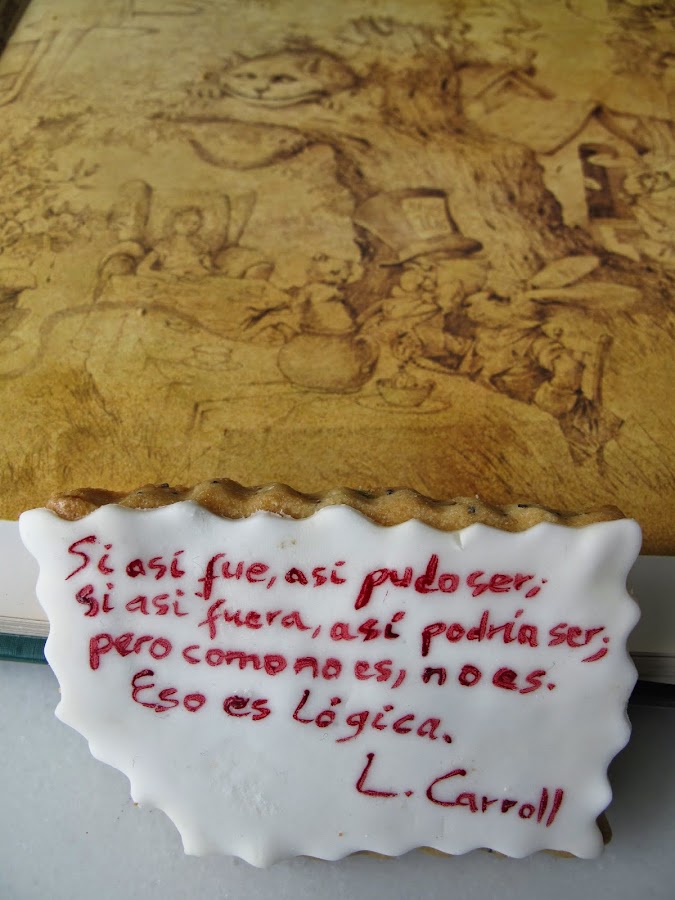 Si así fue, así pudo ser;
si así fuera, así podría ser;
pero como no es, no es.
Eso es Lógica.
L. Carroll